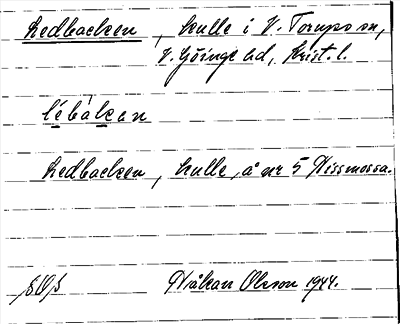 Ledbacken, kulle i V. Torups sn,
V. Göinge hd, Krist. l.
lébàkan
Ledbacken, kulle, å nr 5 Nissmossa.
Håkan Olsson 1944.